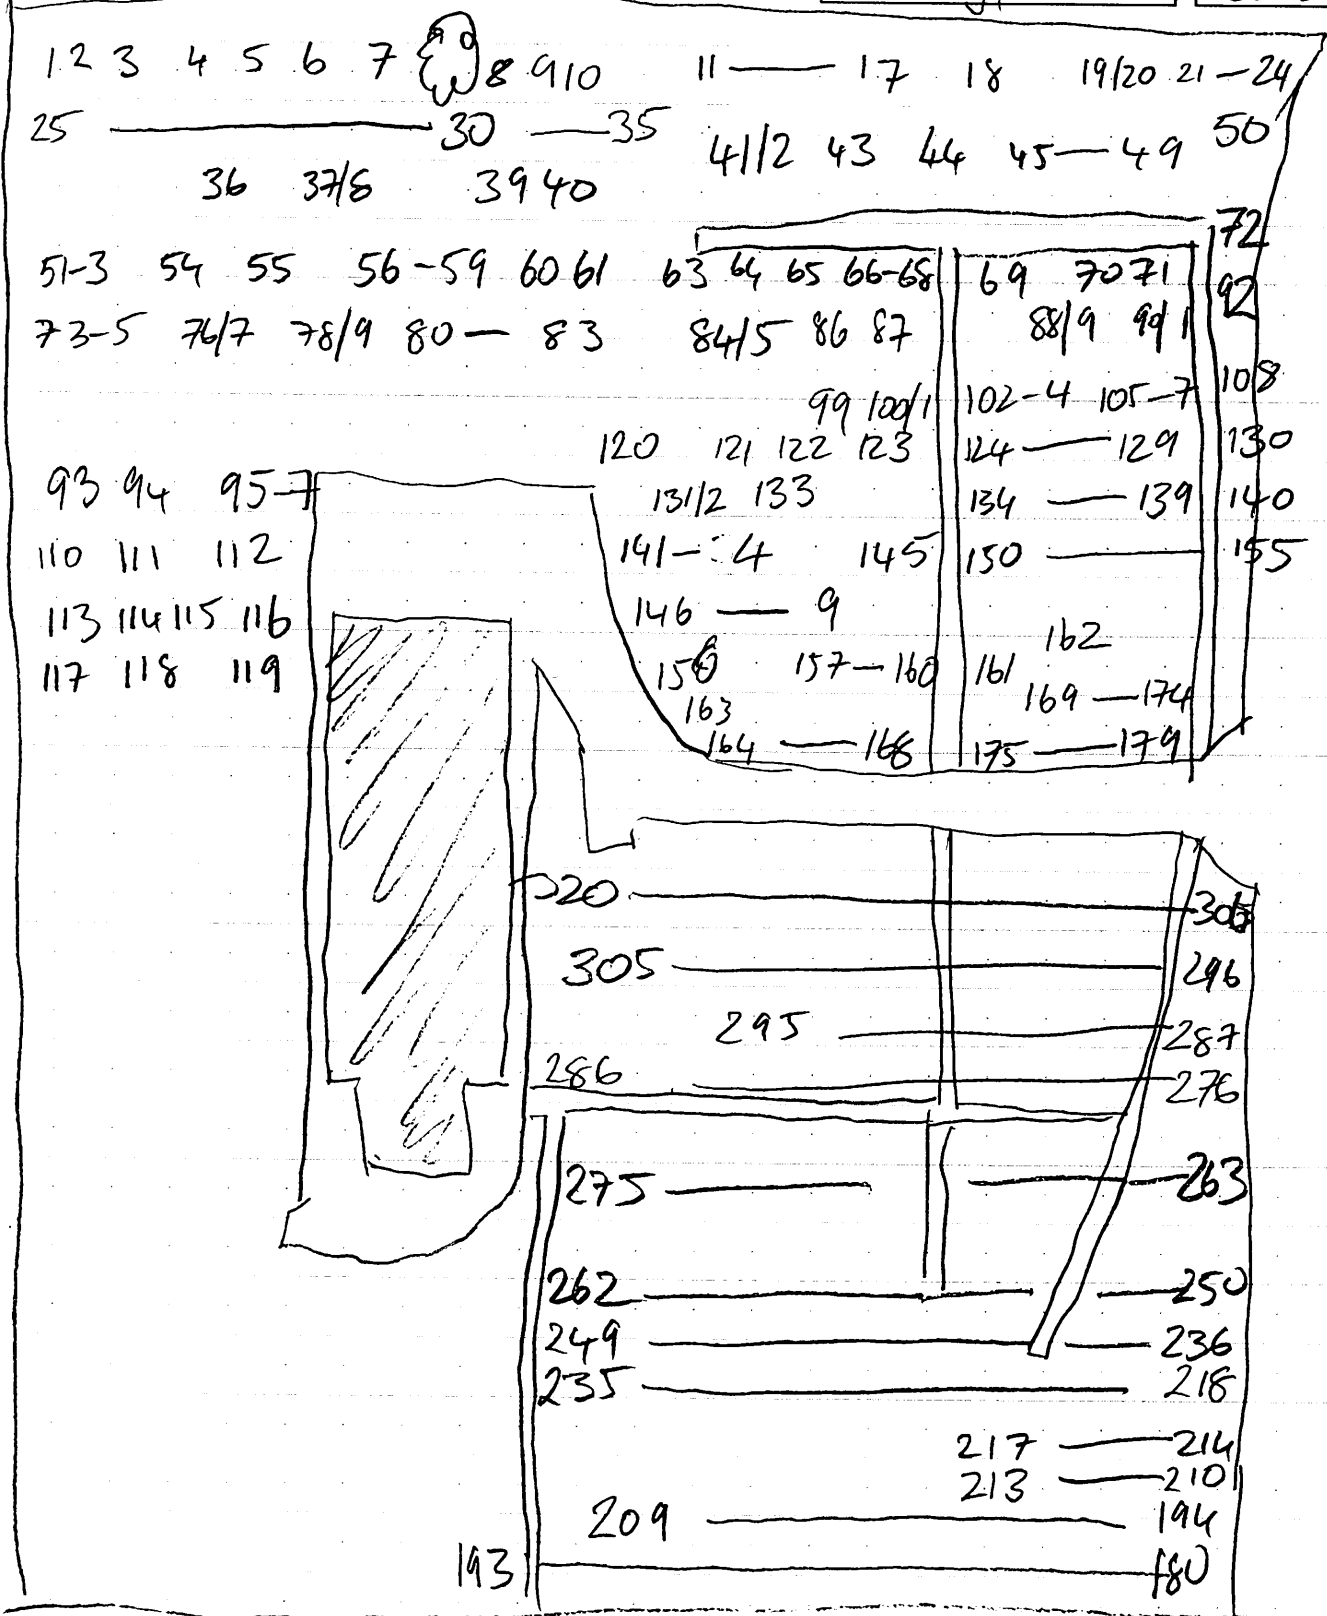 1 2 3 4 5 6 7 8 9 10 11 — 17 18 19/20 21 — 24
25 — 30 — 35 41/2 43 44 45 — 49 50
36 37/8 39 40
72
51-3 54 55 56-59 60 61 63 64 65 66-68 69 70 71 92
73-5 76/7 78/9 80 — 83 84/5 86 87 88/9 90/1
99 100/1 102-4 105-7 108
120 121 122 123 124 — 129 130
93 94 95-7 131/2 133 134 — 139 140
110 111 112 141 — 4 145 150 — 155
113 114 115 116 146 — 9
162
117 118 119 157 — 160 161
163 169 — 174
164 — 168 175 — 179
320 — 306
305 — 296
295 — 287
286 — 276
275 — 263
262 — 250
249 — 236
235 — 218
217 — 214
213 — 210
209 — 194
193 — 180